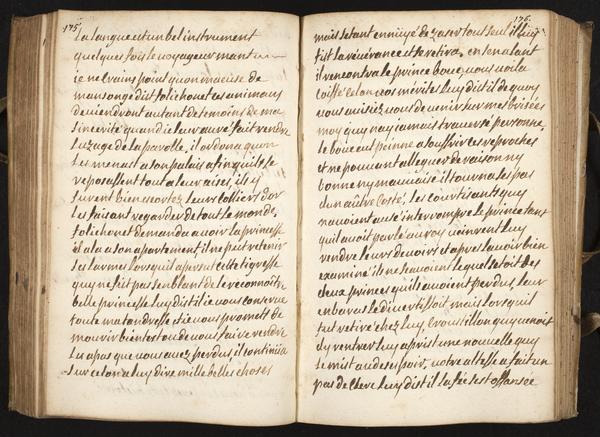 175
La langue est un bel instrument
quelques fois le voyageur mant
ie ne crains point quon m'acuse de
mansonge dist folichon et ces animaux
deviendront autant de temoins de ma
sincerité quand ie leur auré fait rendre
lusage de la parolle, il ordona quon
les menast a son palais afin quils se
reposassent tout a leur aises, ils y
furent bien escortez leurs colliers dor
les faisant regarder de tout le monde,
folichon demanda a voir la princesse
il ala a son apartement, il ne peut retenir
ses larmes lorsquil aperseut cette tigresse
quy ne fit pas senblant de le reconnoitre
belle princesse luy dist il ie vous conserve
toute ma tandresse et ie vous promets de
mourir bientost ou de vous faire rendre
les apas que vous avez perdus, il continüa
sur ce ton a luy dire mille belles choses
176.
mais estant ennüyé de jaser tout seul il luy
fist la reverance et se retira, en senalant
il rencontra le prince bouc, vous voila
coiffé selon vos mérites luy dist il de quoy
vous avisiez vous de venir sur mes brisées
moy quy nay iamais traversé personne,
le bouc eut peinne a souffrir ces reproches
et ne pouvant alleguer de raison ny
bonne ny mauvaise il tourna ses pas
dun aûtre costé, les courtisants quy
navoient osé interrompre le prince tant
quil avoit parlé au roy vinrent luy
rendre leurs devoirs et apres lavoir bien
examiné ils ne scavoient lequel cetoit des
deux princes quils avoient perdus, leur
enbaras le divertissoit mais lors quil
fut retiré chez luy croustillon quy venoit
dy rentrer luy aprist une nouvelle quy
le mist au desespoir, votre altesse a fait un
pas de clerc luy dist il la fée sest offansée